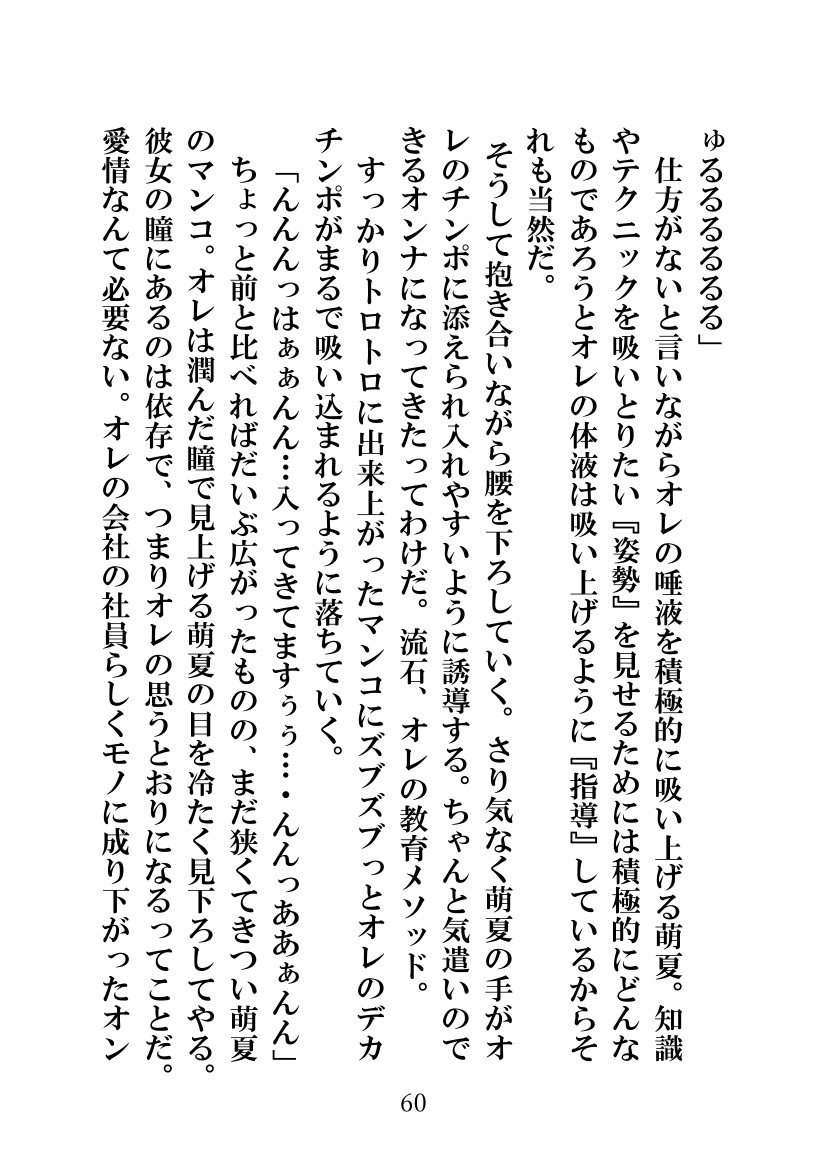 ゅるるるるるる」
　仕方がないと言いながらオレの唾液を積極的に吸い上げる萌夏。知識
やテクニックを吸いとりたい『姿勢』を見せるためには積極的にどんな
ものであろうとオレの体液は吸い上げるように『指導』しているからそ
れも当然だ。
　そうして抱き合いながら腰を下ろしていく。さり気なく萌夏の手がオ
レのチンポに添えられ入れやすいように誘導する。ちゃんと気遣いので
きるオンナになってきたってわけだ。流石、オレの教育メソッド。
　すっかりトロトロに出来上がったマンコにズブズブっとオレのデカ
チンポがまるで吸い込まれるように落ちていく。
「んんんっはぁぁんん…入ってきてますぅぅ…・んんっああぁんん」
　ちょっと前と比べればだいぶ広がったものの、まだ狭くてきつい萌夏
のマンコ。オレは潤んだ瞳で見上げる萌夏の目を冷たく見下ろしてやる。
彼女の瞳にあるのは依存で、つまりオレの思うとおりになるってことだ。
愛情なんて必要ない。オレの会社の社員らしくモノに成り下がったオン
60